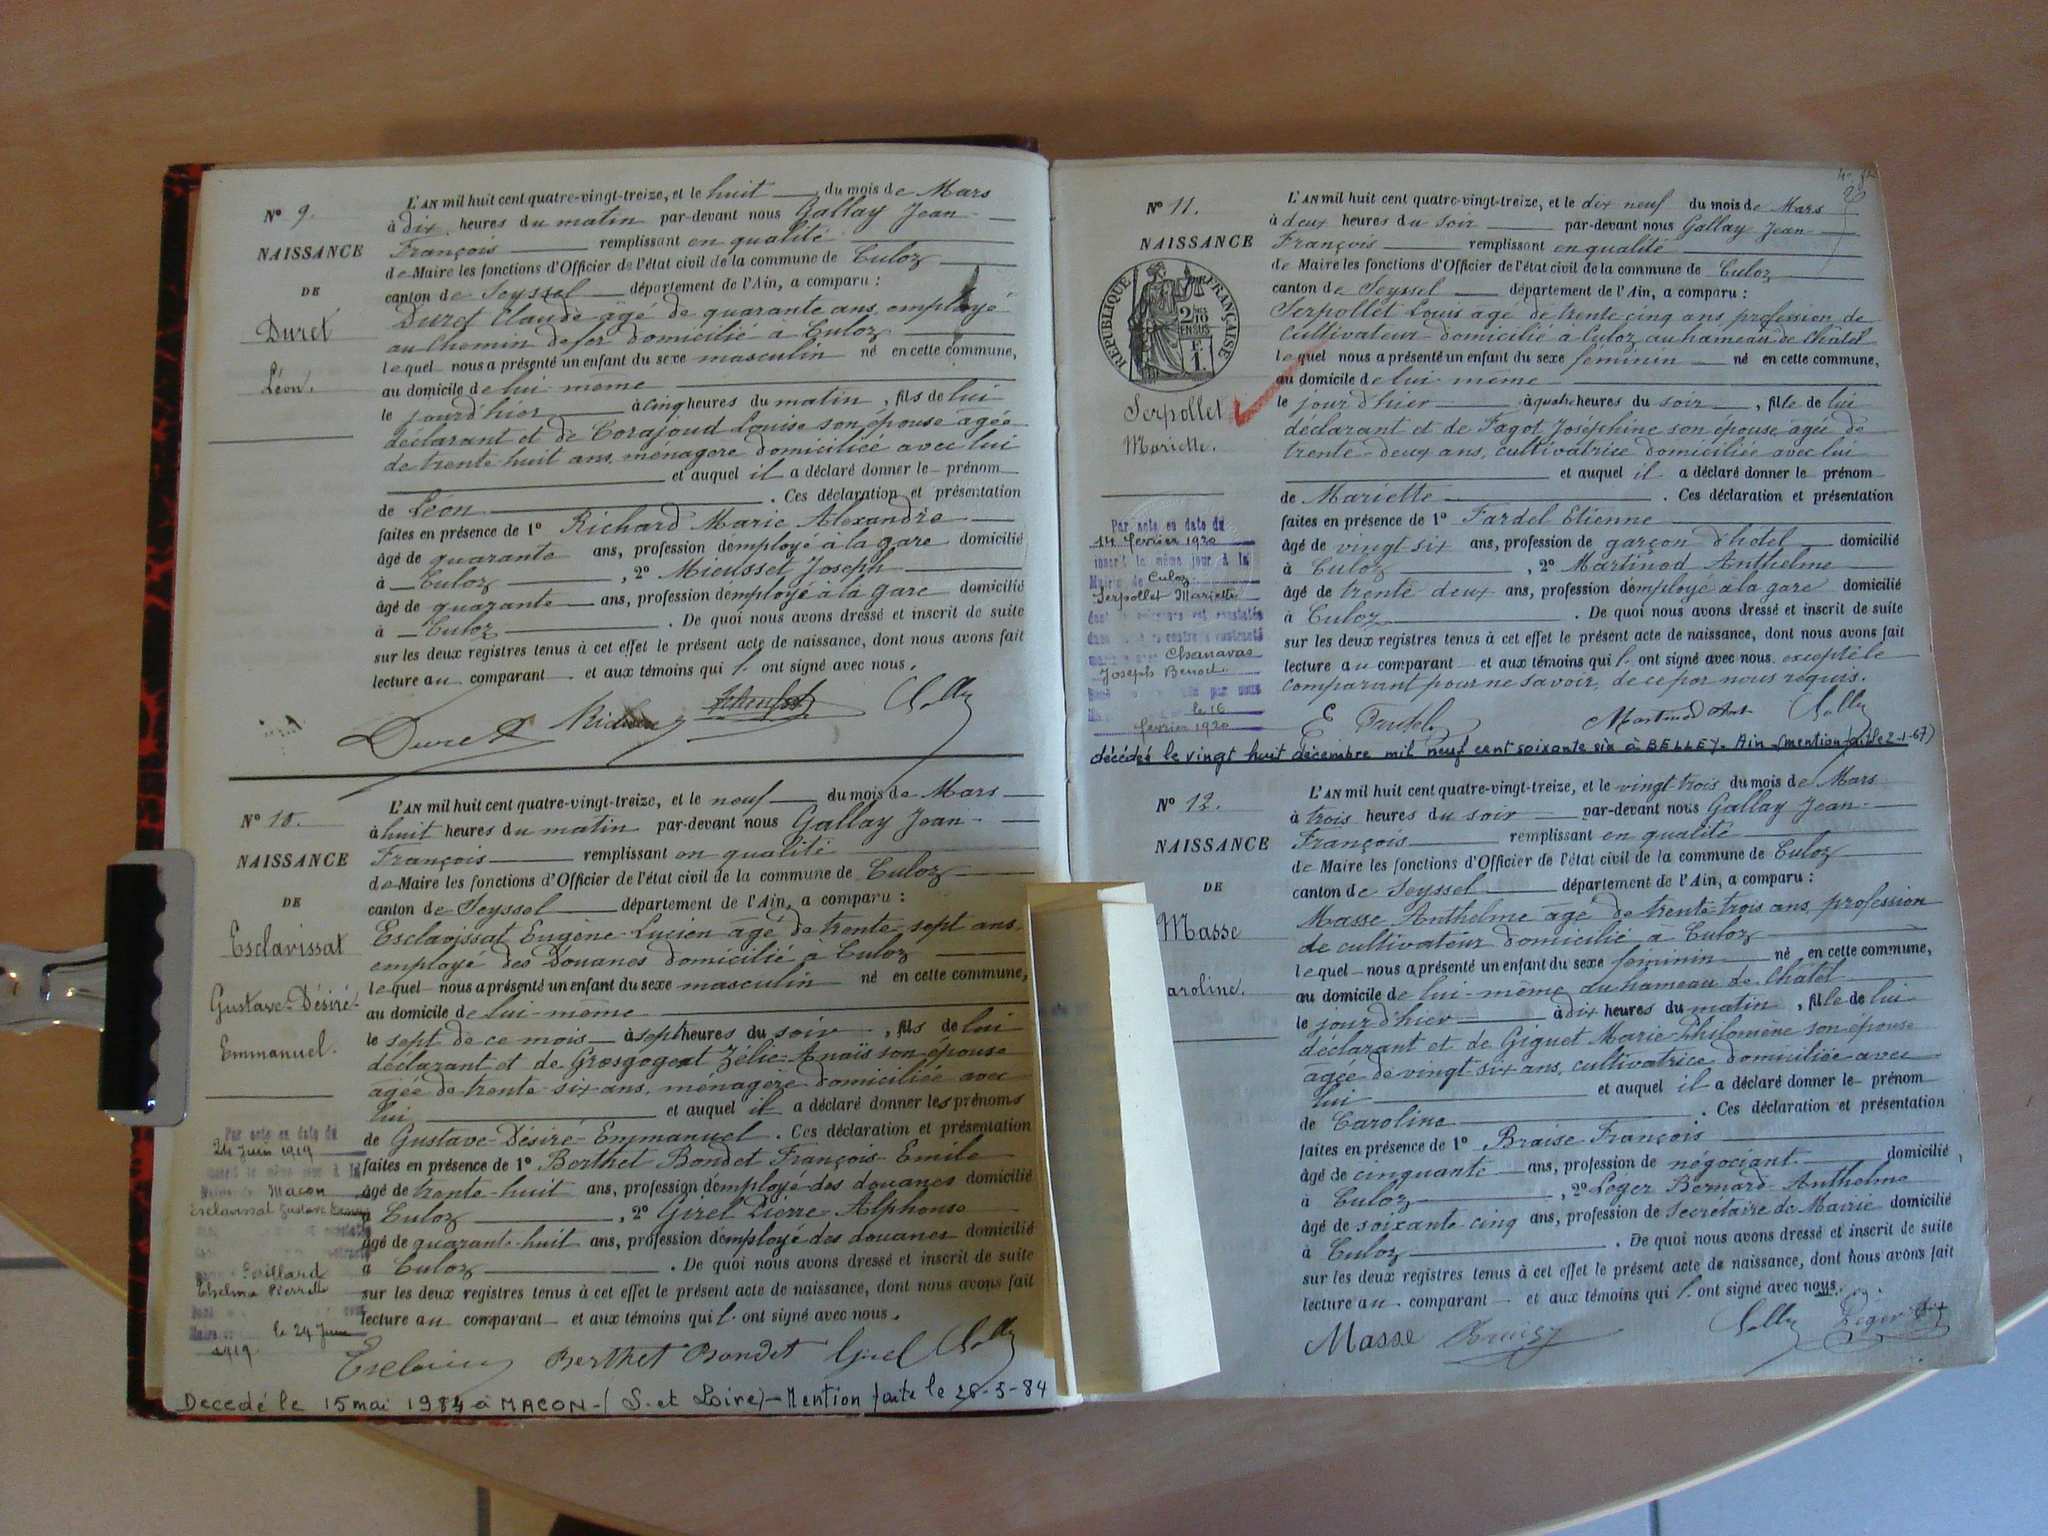 N° 9.
NAISSANCE
DE
Duret
Léon.
L'AN mil huit cent quatre-vingt-treize, et le huit du mois de Mars
à dix heures du matin par-devant nous Gallay Jean
François remplissant en qualité
de Maire les fonctions d'Officier de l'état civil de la commune de Culoz
canton de Seyssel département de l'Ain, a comparu :
Duret Claude âgé de quarante ans, employé
au chemin de fer domicilié à Culoz
lequel nous a présenté un enfant du sexe masculin né en cette commune,
au domicile de lui-même
le jour d'hier à cinq heures du matin, fils de lui
déclarant et de Corajoud Louise son épouse âgée
de trente huit ans, ménagère domiciliée avec lui
et auquel il a déclaré donner le prénom
de Léon. Ces déclaration et présentation
faites en présence de 1° Richard Marie Alexandre
âgé de quarante ans, profession d'employé à la gare domicilié
à Culoz, 2° Mieusset Joseph
âgé de quarante ans, profession d'employé à la gare domicilié
à Culoz. De quoi nous avons dressé et inscrit de suite
sur les deux registres tenus à cet effet le présent acte de naissance, dont nous avons fait
lecture au comparant et aux témoins qui l'ont signé avec nous.
Duret
N° 10.
NAISSANCE
DE
Esclavissat
Gustave-Désiré-
Emmanuel.
Par acte en date du
24 Juin 1919
Macon
Esclavissat Gustave
Thelma Pierrette
le 24 Juin
1919
L'AN mil huit cent quatre-vingt-treize, et le neuf du mois de Mars
à huit heures du matin par-devant nous Gallay Jean
François remplissant en qualité
de Maire les fonctions d'Officier de l'état civil de la commune de Culoz
canton de Seyssel département de l'Ain, a comparu :
Esclavissat Eugène-Lucien âgé de trente-sept ans
employé des Douanes domicilié à Culoz
lequel nous a présenté un enfant du sexe masculin né en cette commune,
au domicile de lui-même
le sept de ce mois à sept heures du soir, fils de lui
déclarant et de Grosgogeat Zélie-Anaïs son épouse
âgée de trente six ans, ménagère domiciliée avec
lui et auquel il a déclaré donner les prénoms
de Gustave-Désiré-Emmanuel. Ces déclaration et présentation
faites en présence de 1° Berthet Bondet François-Emile
âgé de trente-huit ans, profession d'employé des douanes domicilié
à Culoz, 2° Girel Pierre-Alphonse
âgé de quarante-huit ans, profession d'employé des douanes domicilié
à Culoz. De quoi nous avons dressé et inscrit de suite
sur les deux registres tenus à cet effet le présent acte de naissance, dont nous avons fait
lecture au comparant et aux témoins qui l'ont signé avec nous.
Berthet Bondet Girel
Decedé le 15 mai 1984 à MACON - (S. et Loire) - Mention faite le 28-5-84
N° 11.
NAISSANCE
RÉPUBLIQUE FRANÇAISE
Serpollet
Mariette.
Par acte en date du
14 février 1920
inscrit le même jour à la
Mairie de Culoz
Serpollet Mariette
Chanavas
Joseph Benoit
le 16
février 1920
L'AN mil huit cent quatre-vingt-treize, et le dix neuf du mois de Mars
à deux heures du soir par-devant nous Gallay Jean
François remplissant en qualité
de Maire les fonctions d'Officier de l'état civil de la commune de Culoz
canton de Seyssel département de l'Ain, a comparu :
Serpollet Louis âgé de trente cinq ans, profession de
cultivateur domicilié à Culoz au hameau de Châtel
lequel nous a présenté un enfant du sexe féminin né en cette commune,
au domicile de lui-même
le jour d'hier à quatre heures du soir, fille de lui
déclarant et de Fagot Joséphine son épouse âgée de
trente-deux ans, cultivatrice domiciliée avec lui
et auquel il a déclaré donner le prénom
de Mariette. Ces déclaration et présentation
faites en présence de 1° Fardel Etienne
âgé de vingt six ans, profession de garçon d'hôtel domicilié
à Culoz, 2° Martinod Anthelme
âgé de trente deux ans, profession d'employé à la gare domicilié
à Culoz. De quoi nous avons dressé et inscrit de suite
sur les deux registres tenus à cet effet le présent acte de naissance, dont nous avons fait
lecture au comparant et aux témoins qui l'ont signé avec nous excepté le
comparant pour ne savoir, de ce par nous requis.
E Fardel Martinod Ant
décédée le vingt huit décembre mil neuf cent soixante six à BELLEY. Ain (mention faite 2-1-67)
N° 12.
NAISSANCE
DE
Masse
aroline.
L'AN mil huit cent quatre-vingt-treize, et le vingt trois du mois de Mars
à trois heures du soir par-devant nous Gallay Jean
François remplissant en qualité
de Maire les fonctions d'Officier de l'état civil de la commune de Culoz
canton de Seyssel département de l'Ain, a comparu :
Masse Anthelme âgé de trente-trois ans, profession
de cultivateur domicilié à Culoz
lequel nous a présenté un enfant du sexe féminin né en cette commune,
au domicile de lui-même au hameau de Châtel
le jour d'hier à dix heures du matin, fille de lui
déclarant et de Giguet Marie-Philomène son épouse
âgée de vingt-six ans, cultivatrice domiciliée avec
lui et auquel il a déclaré donner le prénom
de Caroline. Ces déclaration et présentation
faites en présence de 1° Braise François
âgé de cinquante ans, profession de négociant domicilié
à Culoz, 2° Leger Bernard-Anthelme
âgé de soixante cinq ans, profession de Secrétaire de Mairie domicilié
à Culoz. De quoi nous avons dressé et inscrit de suite
sur les deux registres tenus à cet effet le présent acte de naissance, dont nous avons fait
lecture au comparant et aux témoins qui l'ont signé avec nous.
Masse Leger